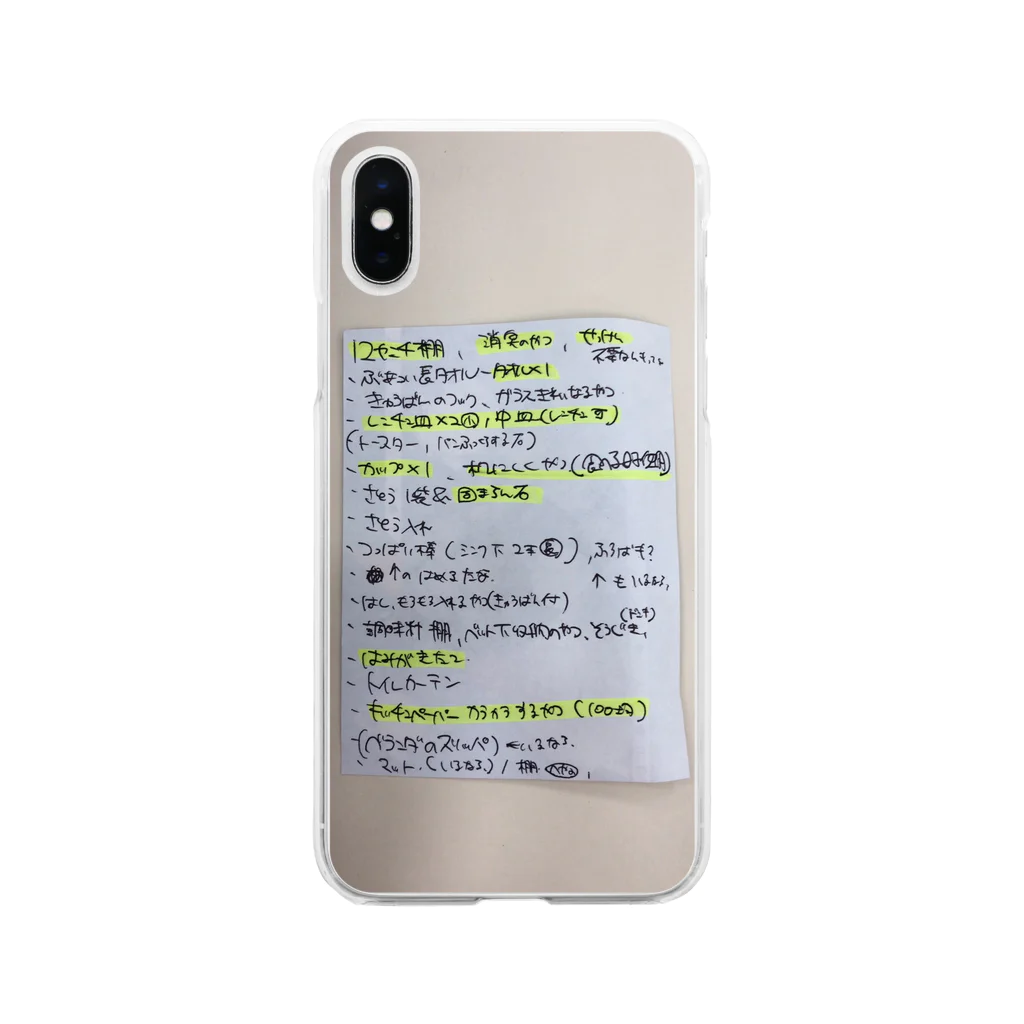 12センチ棚、消臭のやつ、せっけん
・ぶあつい長タオル タオル×1
・きゅうばんのフック、ガラスきれいなるやつ
・レンチン皿×2小、中皿(レンチン可)
(トースター、パンふっくらする石)
・カップ×1、
・さとう1袋& 固まらん石
・さとう入れ
・つっぱり棒(シンク下 2本 長)、ふろばも?
・↑のはめるたな ↑もいるなら、
・はし、もろもろ入れるやつ(きゅうばん付)
・調味料 棚、ベット下収納のやつ、そうじき、
・はみがきたて
・トイレカーテン
・キッチンペーパー カラカラするやつ(100均)
・(ベランダのスリッパ)←いるなら、
・マット.(いるなら.)/棚